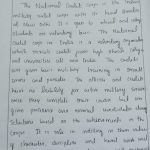 The National Cadet corps is the Indian
military cadet corps with its head quarters
at New Delhi. It is open to school and college
students on voluntary basis. The National
Cadet corps in India is a voluntary organisation
which recruits cadets from high schools, colleges
and universities all over India. The cadets
are given basic military training in small
arms and parade. The officers and cadets
have no liability for active military service
once they complete their course but are
given preference over normal candidates during
selections based on the achievements in the
corps. It is role in instilling in them values
of character, discipline and hard work and